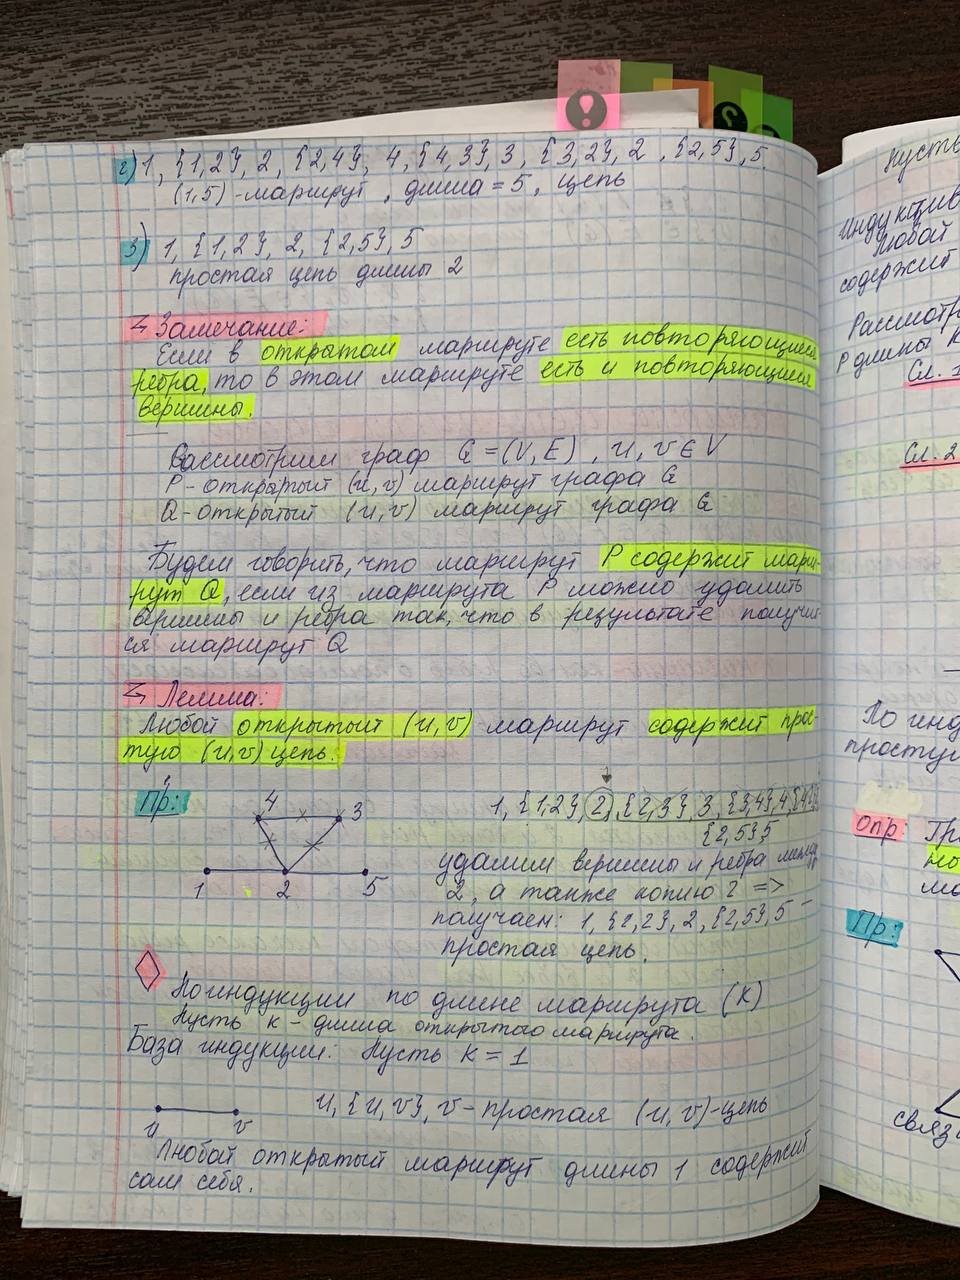 2) 1, {1,2}, 2, {2,4}, 4, {4,3}, 3, {3,2}, 2, {2,5}, 5.
(1,5)-маршрут, длина = 5, цепь
3) 1, {1,2}, 2, {2,5}, 5
простая цепь длины 2
Замечание:
Если в открытом маршруте есть повторяющиеся
ребра, то в этом маршруте есть и повторяющиеся
вершины.
Рассмотрим граф G = (V, E), u, v ∈ V
P - открытый (u,v) маршрут графа G
Q - открытый (u,v) маршрут графа G
Будем говорить, что маршрут P содержит марш-
рут Q, если из маршрута P можно удалить
вершины и ребра так, что в результате получит-
ся маршрут Q
Лемма:
Любой открытый (u,v) маршрут содержит прос-
тую (u,v) цепь.
Пр:
4
3
1
2
5
1, {1,2}, 2, {2,3}, 3, {3,4}, 4, {4,2}
{2,5} 5
удалим вершины и ребра между
2, а также копию 2 =>
получаем: 1, {1,2}, 2, {2,5}, 5 -
простая цепь.
По индукции по длине маршрута (k)
Пусть k - длина открытого маршрута.
База индукции: Пусть k = 1
u
v
u, {u, v}, v - простая (u, v)-цепь
Любой открытый маршрут длины 1 содержит
сам себя.
Пусть
Индуктив
Любой
содержит
Рассмотр
P длины k
Сл. 1
Сл. 2
По инд
простую
Опр:
Пр:
связ